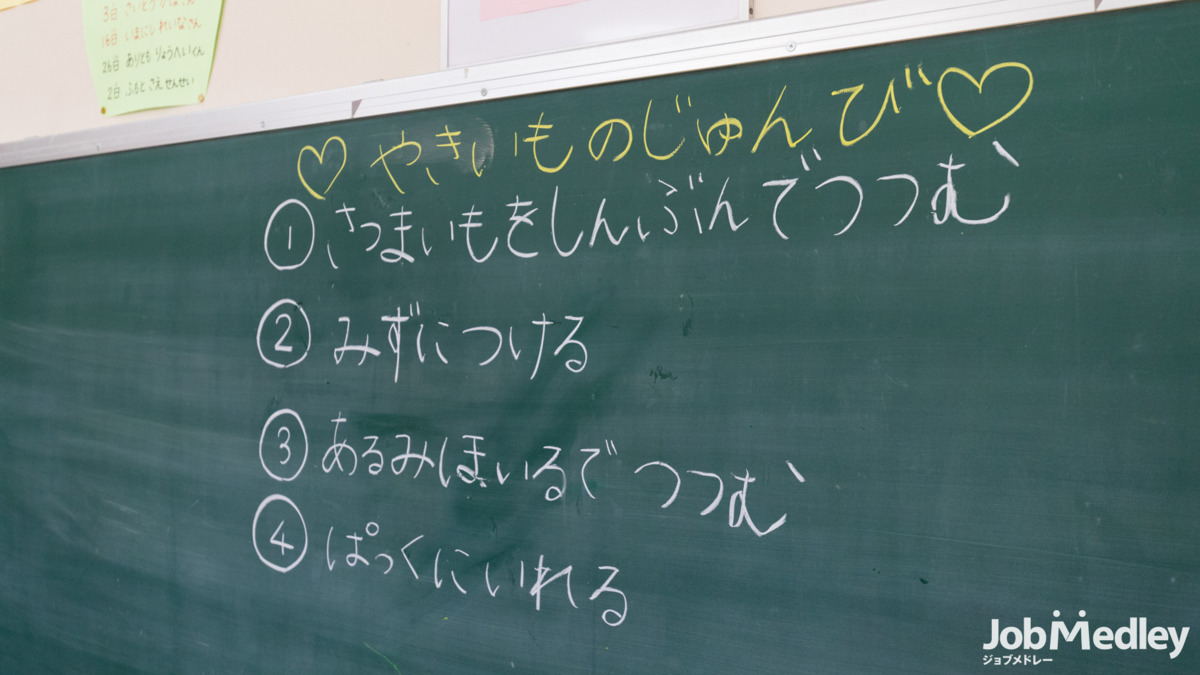 3日 さいとう かほさん
16日 いまにし れいなさん
26日 ありとも りょうへいくん
2日 ふもと さえ せんせい
♡やきいものじゅんび♡
① さつまいもをしんぶんでつつむ
② みずにつける
③ あるみほいるで つつむ
④ ぱっくにいれる
JobMedley
ジョブメドレー